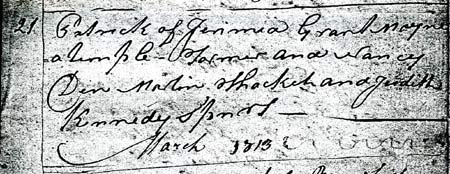 21 Patrick of Jeremea Grant Mayne
a temple - Farmer and Nancy
Den Martin Hacket and Judith
Kennedy Spnrs
March 1813